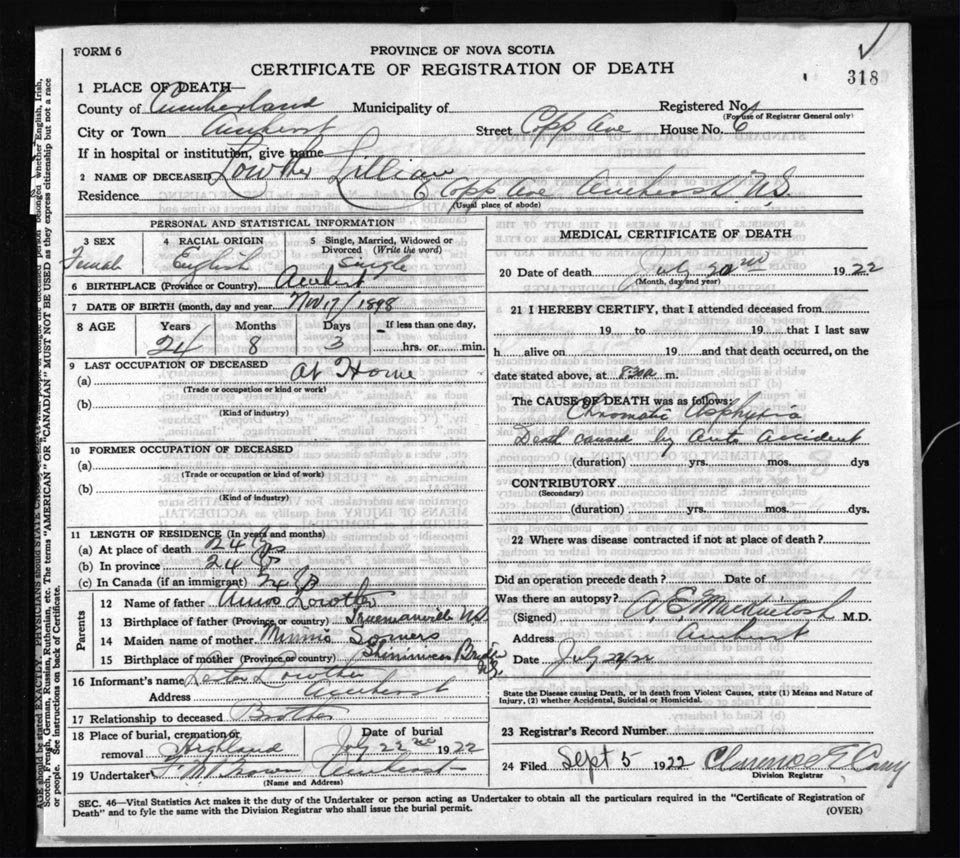 FORM 6
PROVINCE OF NOVA SCOTIA
CERTIFICATE OF REGISTRATION OF DEATH
318
1 PLACE OF DEATH—
County of Cumberland Municipality of Registered No.
(For use of Registrar General only)
City or Town Amherst Street Copp Ave House No. 6
If in hospital or institution, give name
2 NAME OF DECEASED Lowther Lillian
Residence 6 Copp Ave Amherst N.S.
(Usual place of abode)
PERSONAL AND STATISTICAL INFORMATION
3 SEX 4 RACIAL ORIGIN 5 Single, Married, Widowed or Divorced (Write the word)
Female English Single
6 BIRTHPLACE (Province or Country) Amherst
7 DATE OF BIRTH (month, day and year) Nov 17/1898
8 AGE Years Months Days If less than one day,
24 8 3 hrs. or min.
9 LAST OCCUPATION OF DECEASED
(a) At Home
(Trade or occupation or kind of work)
(b)
(Kind of industry)
10 FORMER OCCUPATION OF DECEASED
(a)
(Trade or occupation or kind of work)
(b)
(Kind of industry)
11 LENGTH OF RESIDENCE (In years and months)
(a) At place of death 24 yrs
(b) In province 24
(c) In Canada (if an immigrant) 24
Parents
12 Name of father Amos Lowther
13 Birthplace of father (Province or country) Truemanville N.S.
14 Maiden name of mother Minnie Somers
15 Birthplace of mother (Province or country) Shinimicas Bridge N.S.
16 Informant's name Lester Lowther
Address Amherst
17 Relationship to deceased Brother
18 Place of burial, cremation or removal Highland Date of burial July 22nd 1922
19 Undertaker Brown Amherst
(Name and Address)
MEDICAL CERTIFICATE OF DEATH
20 Date of death July 1922
(Month, day and year)
21 I HEREBY CERTIFY, that I attended deceased from
19 to 19 that I last saw
h alive on 19 and that death occurred, on the
date stated above, at m.
The CAUSE OF DEATH was as follows:
Asphyxia
Death caused by Auto Accident
(duration) yrs. mos. dys
CONTRIBUTORY
(Secondary)
(duration) yrs. mos. dys.
22 Where was disease contracted if not at place of death?
Did an operation precede death? Date of
Was there an autopsy?
(Signed) A. E. Mackintosh M.D.
Address Amherst
Date July 22/22
State the Disease causing Death, or in death from Violent Causes, state (1) Means and Nature of Injury, (2) whether Accidental, Suicidal or Homicidal.
23 Registrar's Record Number
24 Filed Sept 5 1922 Clarence E
Division Registrar
SEC. 46—Vital Statistics Act makes it the duty of the Undertaker or person acting as Undertaker to obtain all the particulars required in the "Certificate of Registration of
Death" and to fyle the same with the Division Registrar who shall issue the burial permit.
(OVER)
AGE should be stated EXACTLY. PHYSICIANS should STATE
belonged whether English, Irish,
Scotch, French, German, Russian, Ruthenian, etc. The terms "AMERICAN" OR "CANADIAN" MUST NOT BE USED as they express citizenship but not a race
or people. See instructions on back of Certificate.